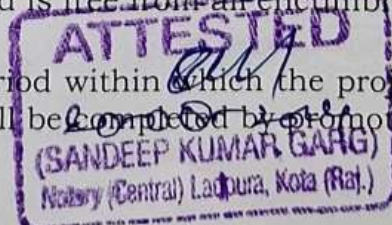 d is free from all encumb
ATTESTED
riod within which the pro
ll be completed by promot
(SANDEEP KUMAR GARG)
Notary (Central) Ladpura, Kota (Raj.)